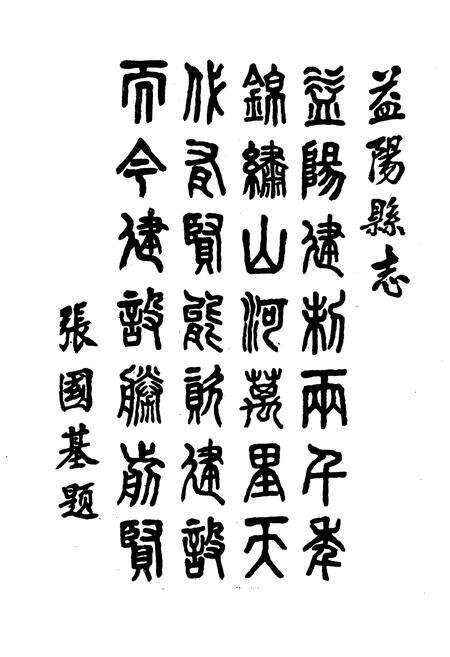 益陽縣志
益陽建制兩千年
錦繡山河萬里天
代有賢能建設
而今建設勝前賢
張國基題